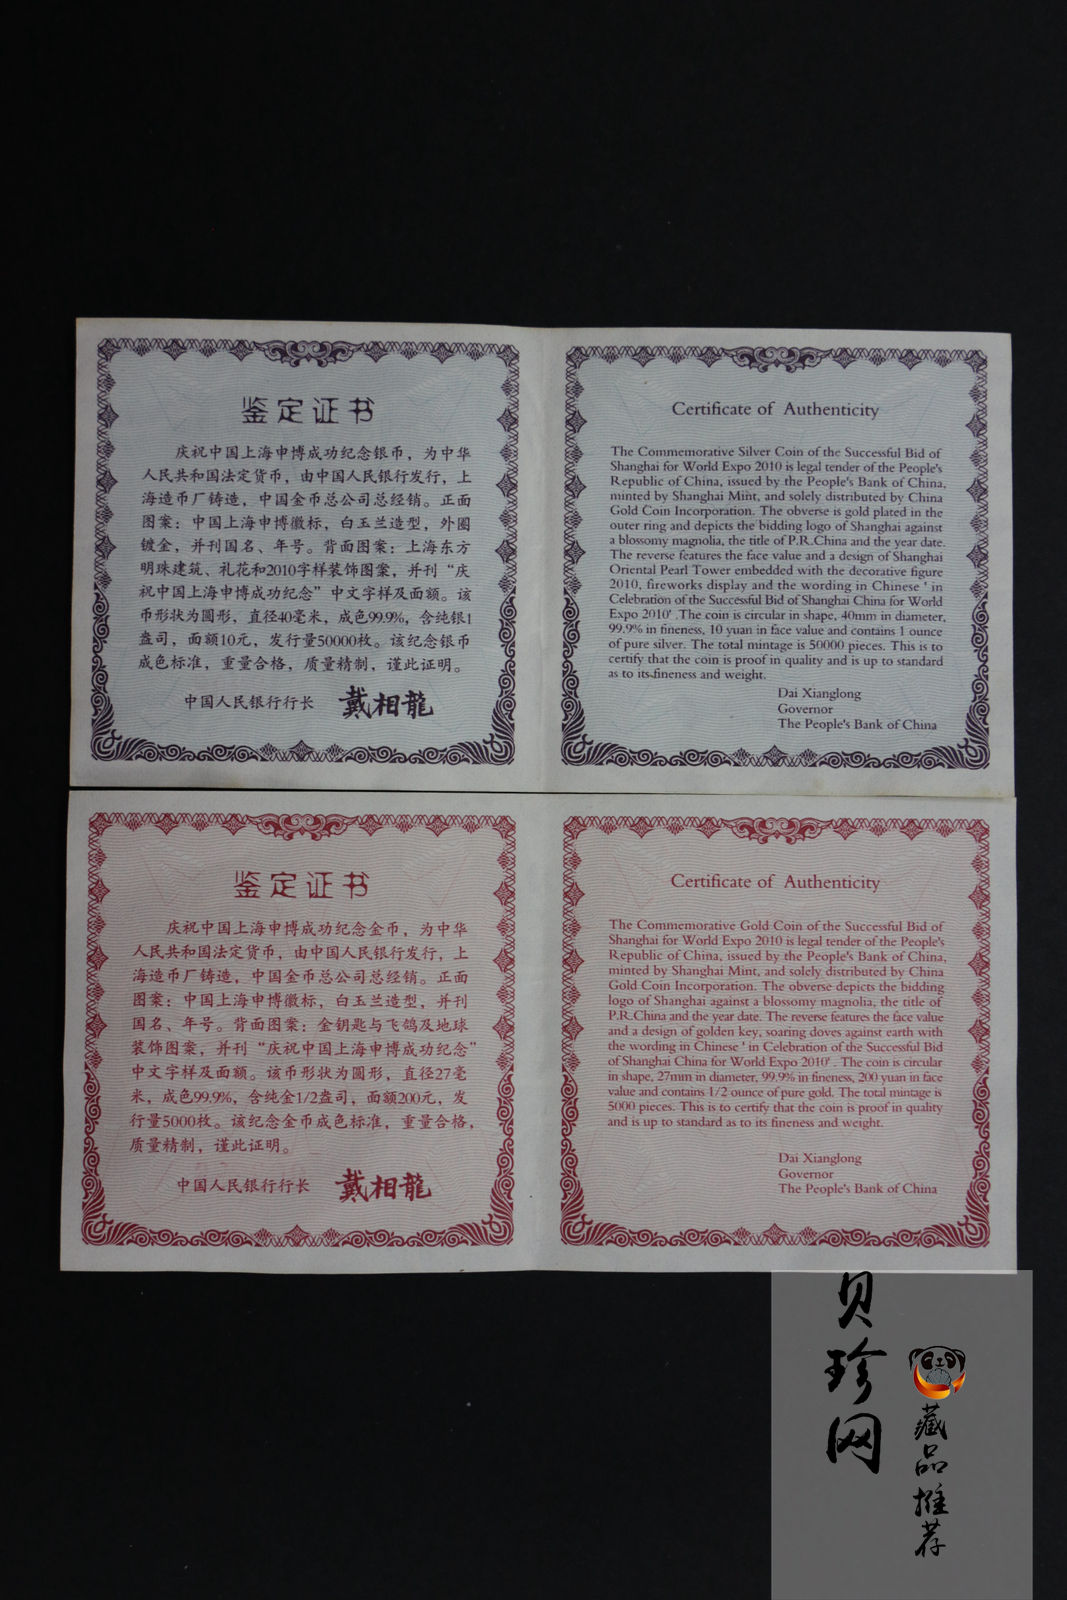 鉴定证书
庆祝中国上海申博成功纪念银币，为中华
人民共和国法定货币，由中国人民银行发行，上
海造币厂铸造，中国金币总公司总经销。正面
图案：中国上海申博徽标，白玉兰造型，外圈
镀金，并刊国名、年号。背面图案：上海东方
明珠建筑、礼花和2010字样装饰图案，并刊“庆
祝中国上海申博成功纪念”中文字样及面额。该
币形状为圆形，直径40毫米，成色99.9%，含纯银1
盎司，面额10元，发行量50000枚。该纪念银币
成色标准，重量合格，质量精制，谨此证明。
中国人民银行行长 戴相龍
Certificate of Authenticity
The Commemorative Silver Coin of the Successful Bid of
Shanghai for World Expo 2010 is legal tender of the People's
Republic of China, issued by the People's Bank of China,
minted by Shanghai Mint, and solely distributed by China
Gold Coin Incorporation. The obverse is gold plated in the
outer ring and depicts the bidding logo of Shanghai against
a blossomy magnolia, the title of P.R.China and the year date.
The reverse features the face value and a design of Shanghai
Oriental Pearl Tower embedded with the decorative figure
2010, fireworks display and the wording in Chinese ' in
Celebration of the Successful Bid of Shanghai China for World
Expo 2010' . The coin is circular in shape, 40mm in diameter,
99.9% in fineness, 10 yuan in face value and contains 1 ounce
of pure silver. The total mintage is 50000 pieces. This is to
certify that the coin is proof in quality and is up to standard
as to its fineness and weight.
Dai Xianglong
Governor
The People's Bank of China
鉴定证书
庆祝中国上海申博成功纪念金币，为中华
人民共和国法定货币，由中国人民银行发行，上
海造币厂铸造，中国金币总公司总经销。正面
图案：中国上海申博徽标，白玉兰造型，并刊
国名、年号。背面图案：金钥匙与飞鸽及地球
装饰图案，并刊“庆祝中国上海申博成功纪念”
中文字样及面额。该币形状为圆形，直径27毫
米，成色99.9%，含纯金1/2盎司，面额200元，发
行量5000枚。该纪念金币成色标准，重量合格，
质量精制，谨此证明。
中国人民银行行长 戴相龍
Certificate of Authenticity
The Commemorative Gold Coin of the Successful Bid of
Shanghai for World Expo 2010 is legal tender of the People's
Republic of China, issued by the People's Bank of China,
minted by Shanghai Mint, and solely distributed by China
Gold Coin Incorporation. The obverse depicts the bidding
logo of Shanghai against a blossomy magnolia, the title of
P.R.China and the year date. The reverse features the face value
and a design of golden key, soaring doves against earth with
the wording in Chinese ' in Celebration of the Successful Bid
of Shanghai China for World Expo 2010' . The coin is circular
in shape, 27mm in diameter, 99.9% in fineness, 200 yuan in face
value and contains 1/2 ounce of pure gold. The total mintage is
5000 pieces. This is to certify that the coin is proof in quality
and is up to standard as to its fineness and weight.
Dai Xianglong
Governor
The People's Bank of China
贝珍网
藏品推荐